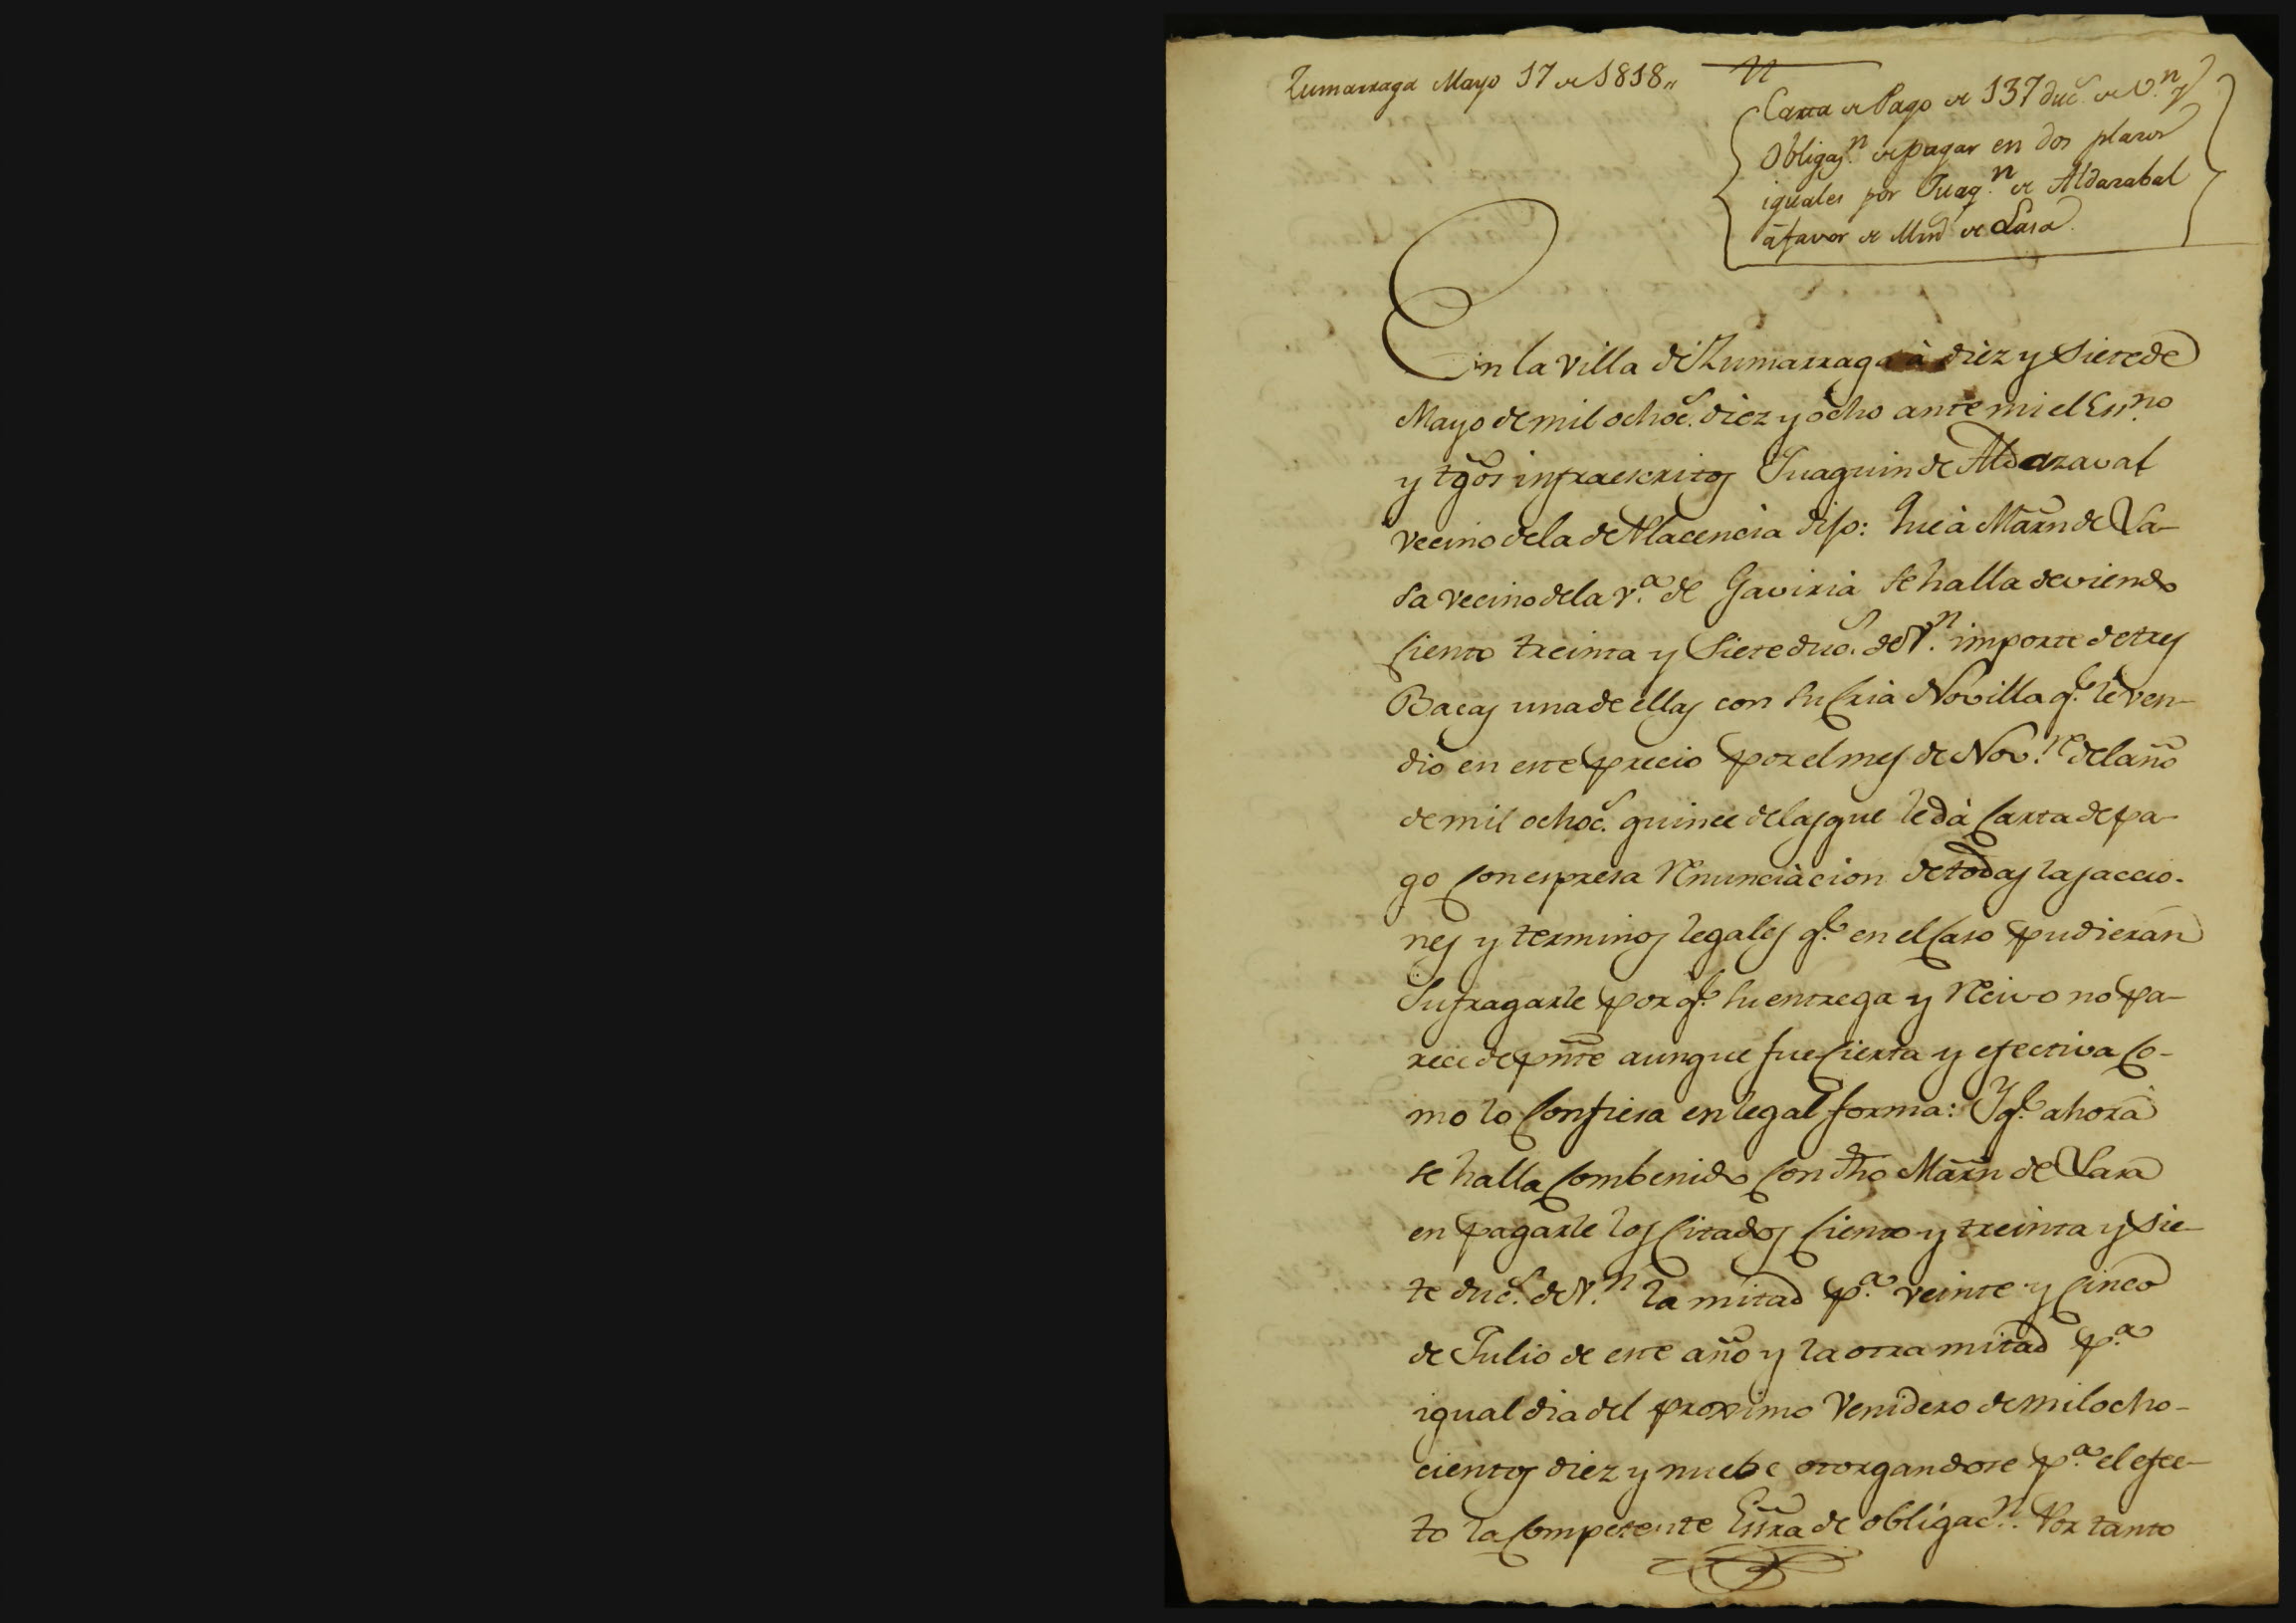 Zumarraga Mayo 17 de 1818,,
Carta de Pago de 137 duc.s de V.n y
Obligaz.n de pagar en dos plazos
iguales por Juaq.n de Aldazabal
à favor de Mrn de Lasa.
En la villa de Zumarraga à diez y siete de
Mayo de mil ochoc.s diez y ocho ante mi el Ess.no
y tg̃os infraescritos Juaquin de Aldazaval
vecino de la de Placencia dijo: Que à Marn de La-
sa vecino de la v.a de Gaviria se halla deviendo
Ciento treinta y Siete duc.s de V.n importe de tres
Bacas una de ellas con su Cria Novilla q.e le ven-
dió en este precio por el mes de Nov.re del año
de mil ochoc.s quince de las que le dà Carta de pa-
go Con espresa renunciacion de todas las accio-
nes y terminos legales q.e en el Caso pudieran
Sufragarle por q.e su entrega y recivo no pa-
rece de pñte aunque fue Cierta y efectiva Co-
mo lo Confiesa en legal forma: Y q.e ahora
se halla Combenido Con dho Marn de Lasa
en pagarle los Citados Ciento y treinta y sie-
te duc.s de V.n la mitad p.a veinte y Cinco
de Julio de este año y la otra mitad p.a
igual dia del proximo Venidero de mil ocho-
cientos diez y nuebe otorgandose p.a el efec-
to la Competente Essra de obligac.n Por tanto